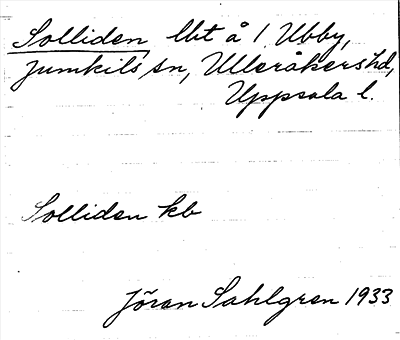 Solliden lht å 1 Ubby,
Jumkils sn, Ulleråkers hd,
Uppsala l.
Solliden kb
Jöran Sahlgren 1933